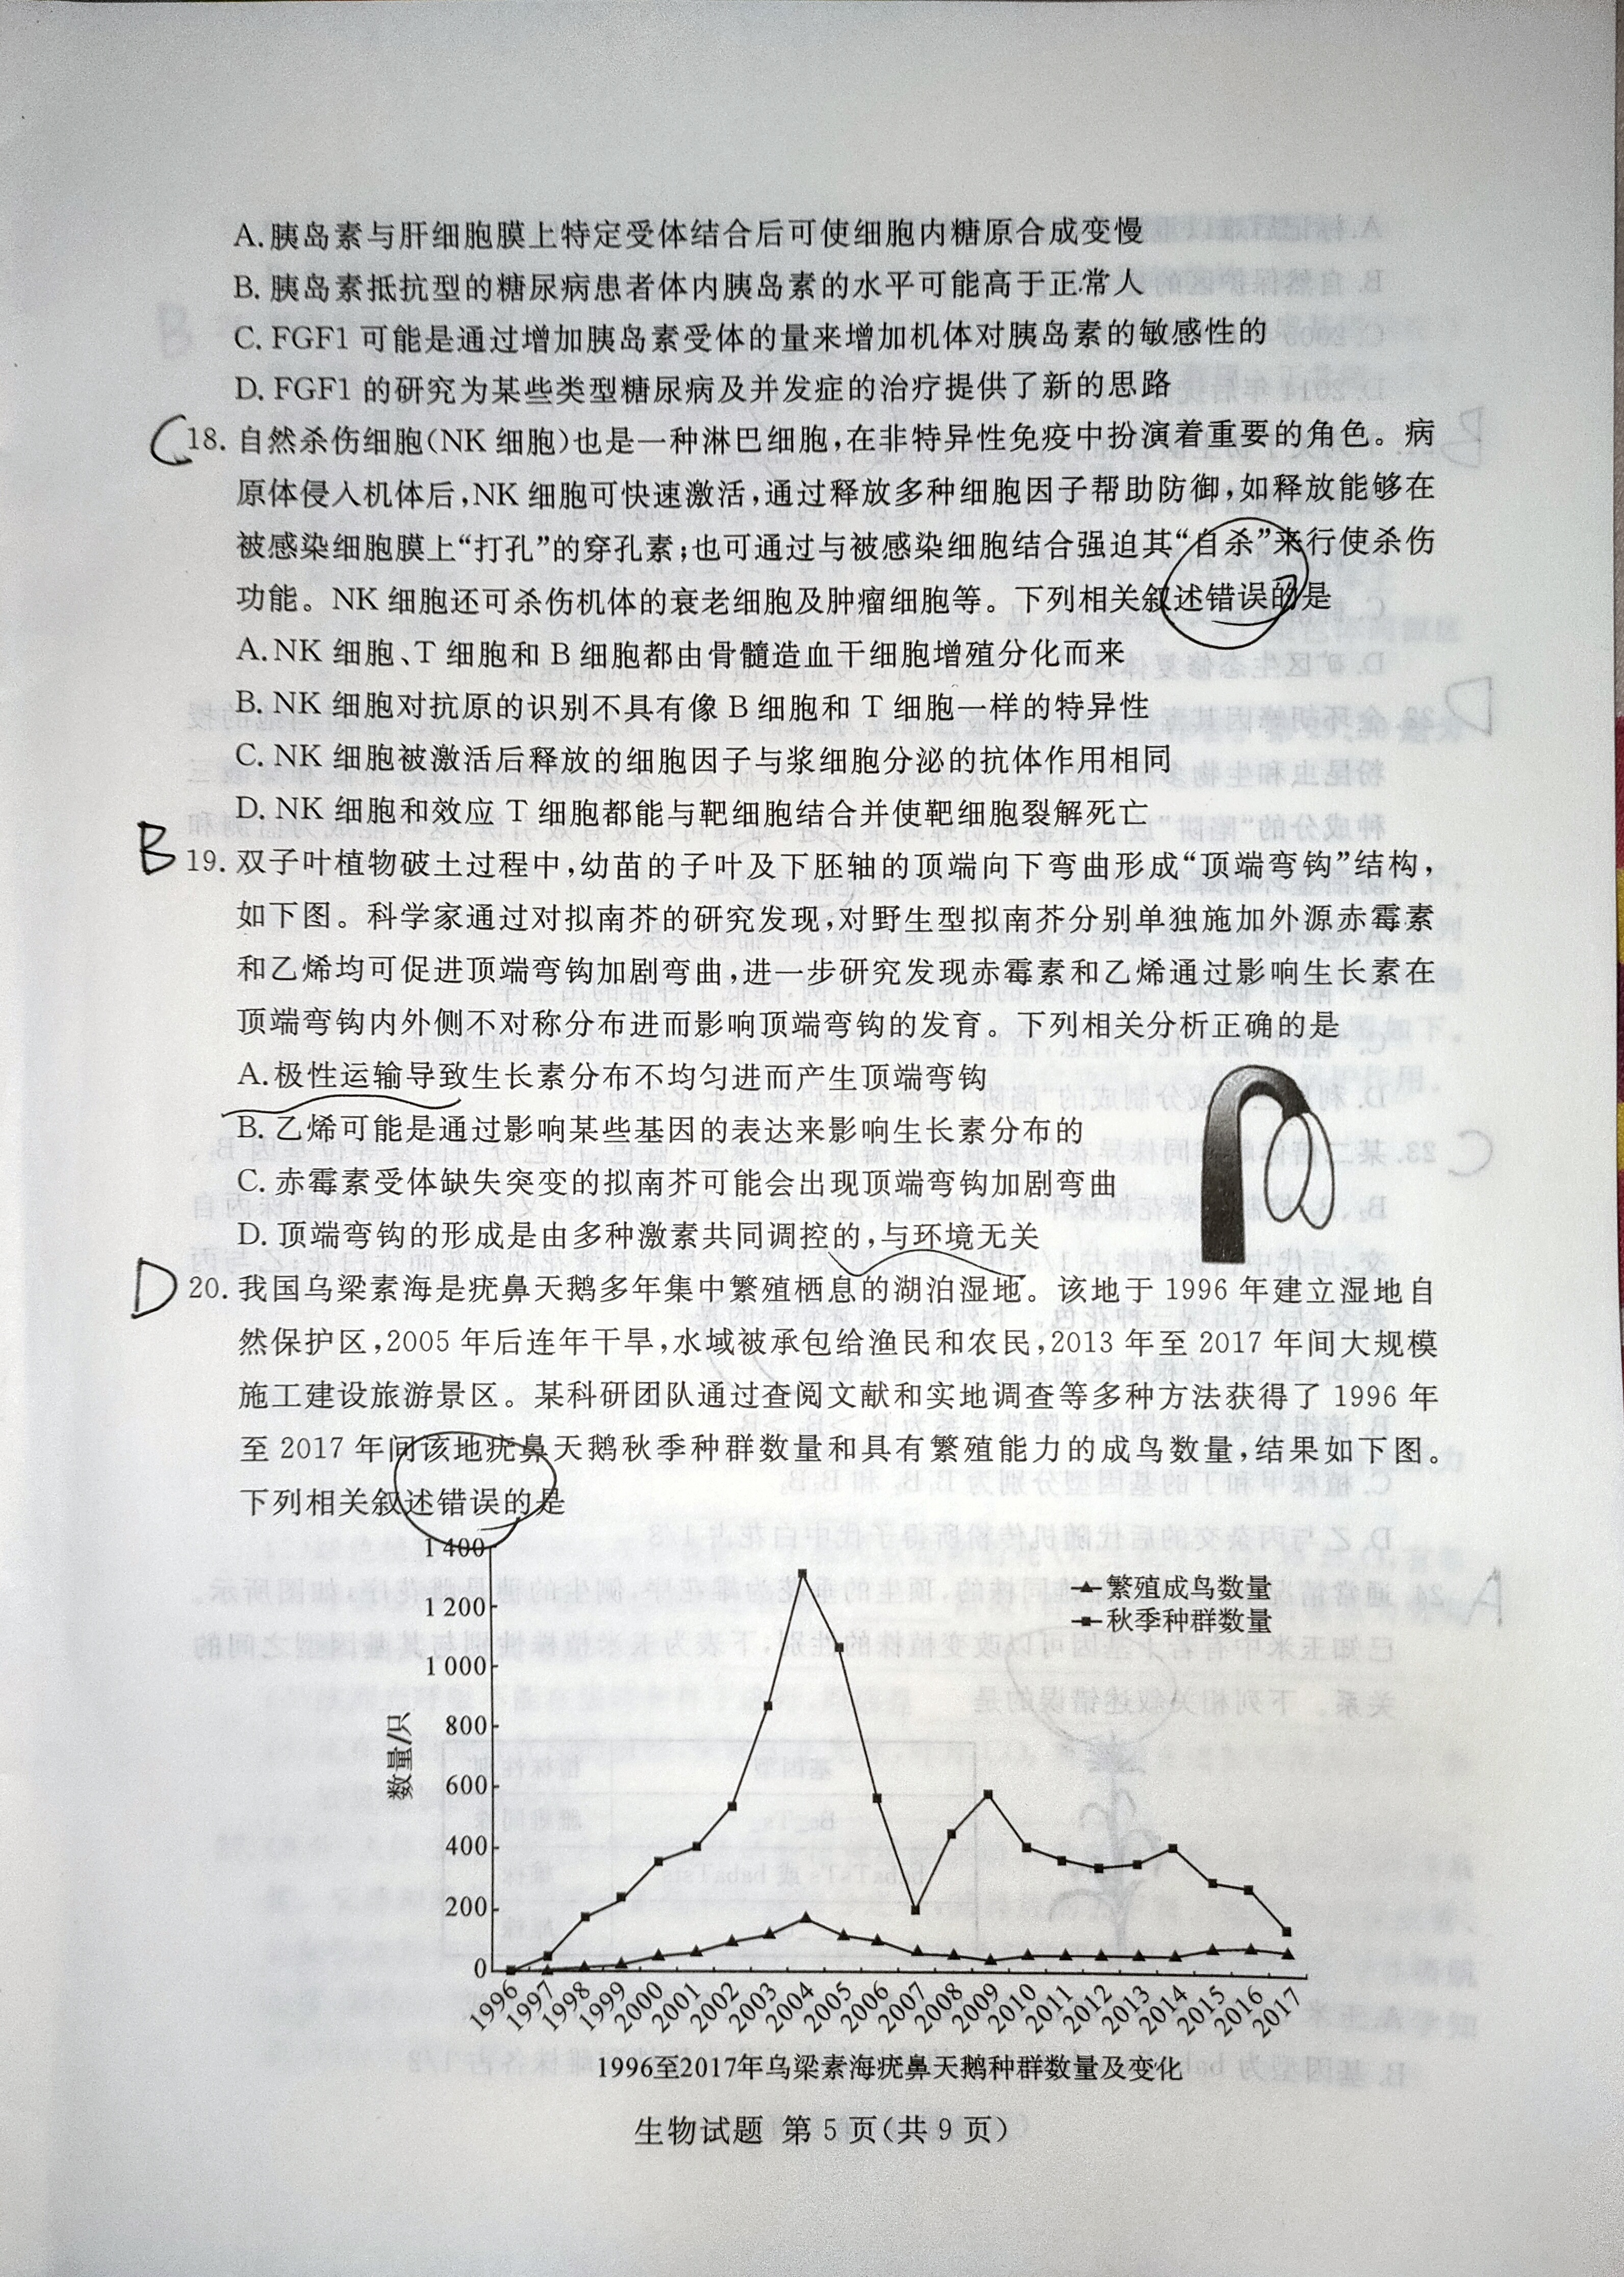 A.胰岛素与肝细胞膜上特定受体结合后可使细胞内糖原合成变慢
B. 胰岛素抵抗型的糖尿病患者体内胰岛素的水平可能高于正常人
C. FGF1 可能是通过增加胰岛素受体的量来增加机体对胰岛素的敏感性的
D. FGF1 的研究为某些类型糖尿病及并发症的治疗提供了新的思路
C 18. 自然杀伤细胞(NK 细胞)也是一种淋巴细胞,在非特异性免疫中扮演着重要的角色。病
原体侵入机体后,NK 细胞可快速激活,通过释放多种细胞因子帮助防御,如释放能够在
被感染细胞膜上“打孔”的穿孔素;也可通过与被感染细胞结合强迫其“自杀”来行使杀伤
功能。NK 细胞还可杀伤机体的衰老细胞及肿瘤细胞等。下列相关叙述错误的是
A. NK 细胞、T 细胞和 B 细胞都由骨髓造血干细胞增殖分化而来
B. NK 细胞对抗原的识别不具有像 B 细胞和 T 细胞一样的特异性
C. NK 细胞被激活后释放的细胞因子与浆细胞分泌的抗体作用相同
D. NK 细胞和效应 T 细胞都能与靶细胞结合并使靶细胞裂解死亡
B 19. 双子叶植物破土过程中,幼苗的子叶及下胚轴的顶端向下弯曲形成“顶端弯钩”结构,
如下图。科学家通过对拟南芥的研究发现,对野生型拟南芥分别单独施加外源赤霉素
和乙烯均可促进顶端弯钩加剧弯曲,进一步研究发现赤霉素和乙烯通过影响生长素在
顶端弯钩内外侧不对称分布进而影响顶端弯钩的发育。下列相关分析正确的是
A. 极性运输导致生长素分布不均匀进而产生顶端弯钩
B. 乙烯可能是通过影响某些基因的表达来影响生长素分布的
C. 赤霉素受体缺失突变的拟南芥可能会出现顶端弯钩加剧弯曲
D. 顶端弯钩的形成是由多种激素共同调控的,与环境无关
D 20. 我国乌梁素海是疣鼻天鹅多年集中繁殖栖息的湖泊湿地。该地于 1996 年建立湿地自
然保护区,2005 年后连年干旱,水域被承包给渔民和农民,2013 年至 2017 年间大规模
施工建设旅游景区。某科研团队通过查阅文献和实地调查等多种方法获得了 1996 年
至 2017 年间该地疣鼻天鹅秋季种群数量和具有繁殖能力的成鸟数量,结果如下图。
下列相关叙述错误的是
1 400
1 200
1 000
800
600
400
200
0
数量/只
繁殖成鸟数量
秋季种群数量
1996 1997 1998 1999 2000 2001 2002 2003 2004 2005 2006 2007 2008 2009 2010 2011 2012 2013 2014 2015 2016 2017
1996至2017年乌梁素海疣鼻天鹅种群数量及变化
生物试题 第 5 页(共 9 页)